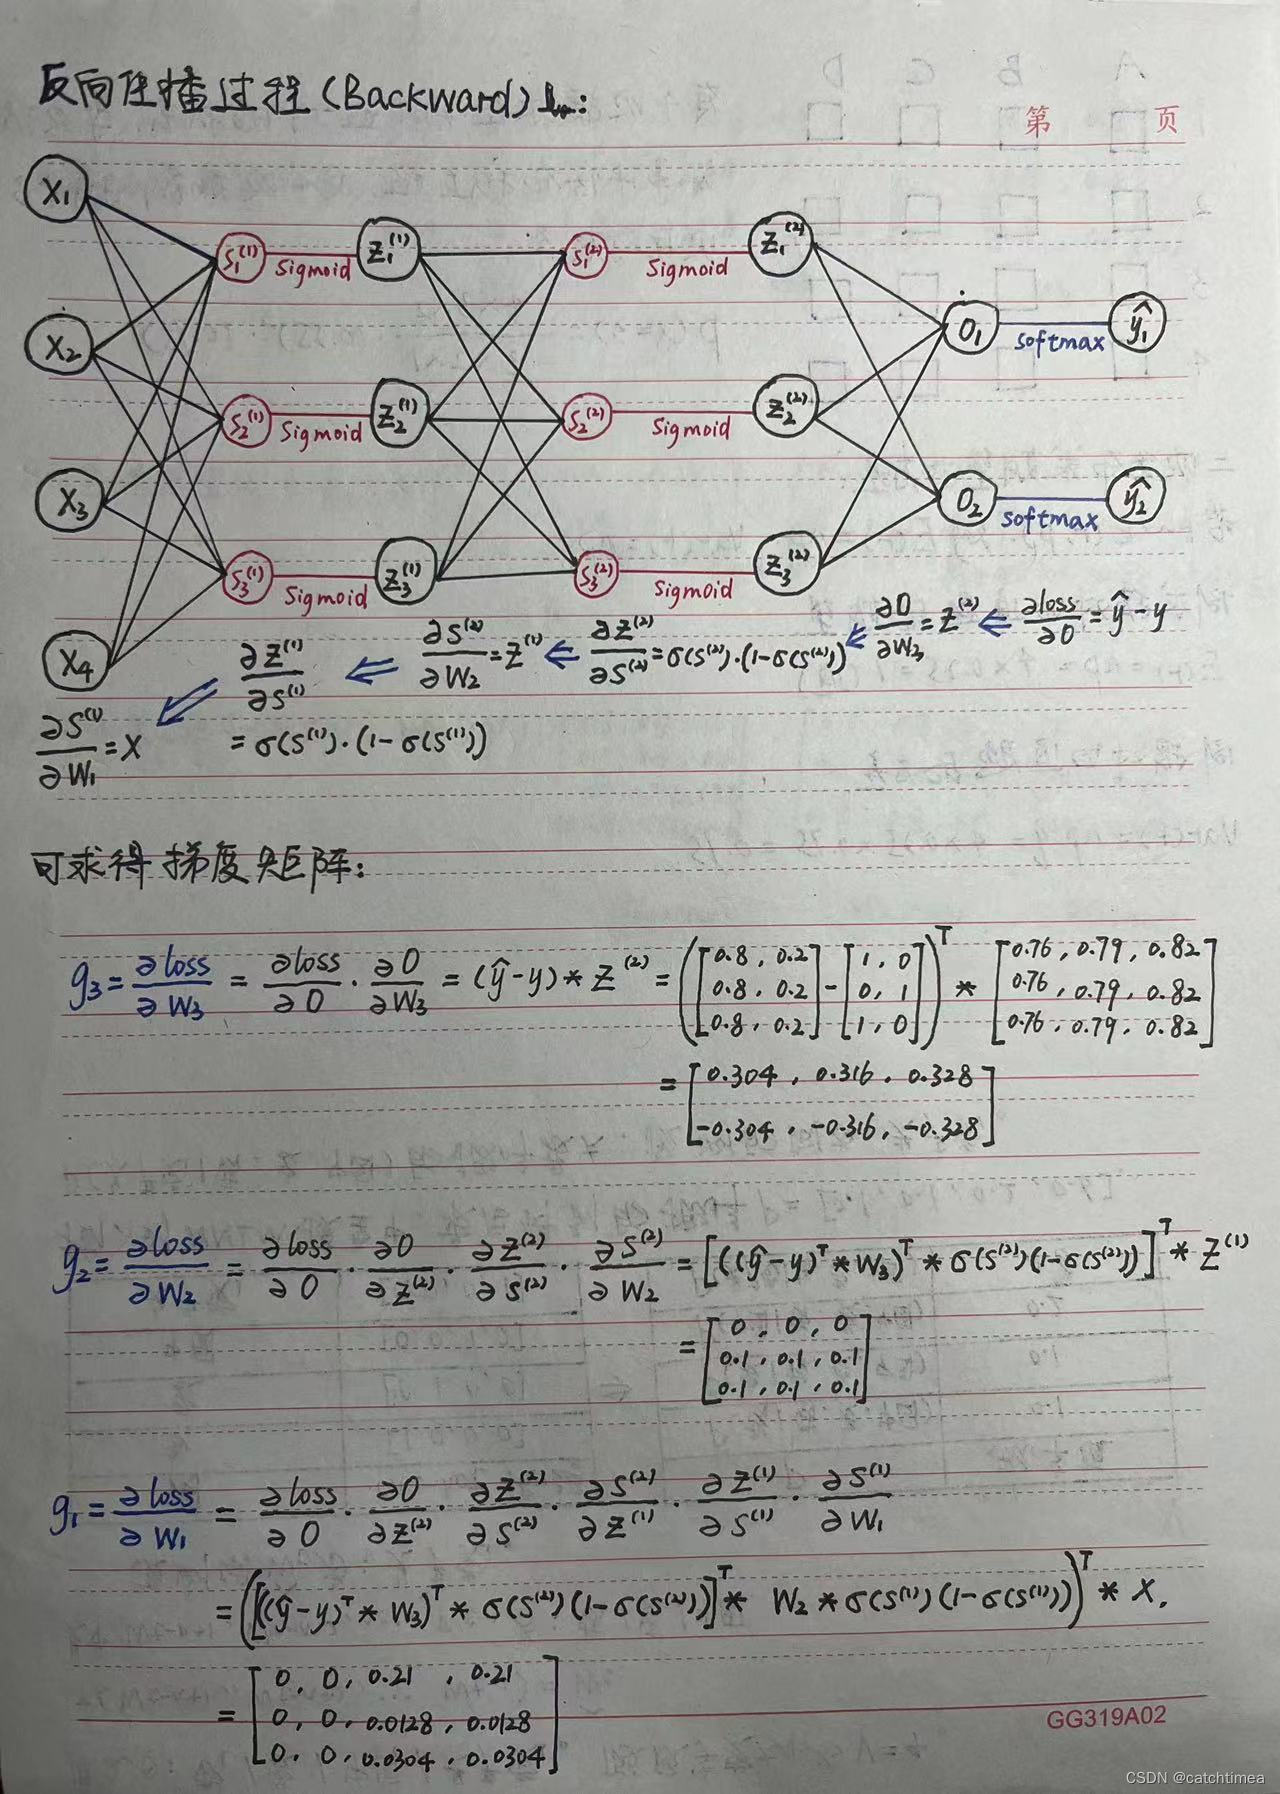 反向传播过程(Backward):
第 页
X₁
S₁⁽¹⁾ Sigmoid Z₁⁽¹⁾ S₁⁽²⁾ Sigmoid Z₁⁽²⁾
X₂
O₁ softmax ŷ₁
S₂⁽¹⁾ Sigmoid Z₂⁽¹⁾ S₂⁽²⁾ Sigmoid Z₂⁽²⁾
X₃
O₂ softmax ŷ₂
S₃⁽¹⁾ Sigmoid Z₃⁽¹⁾ S₃⁽²⁾ Sigmoid Z₃⁽²⁾
X₄
∂S⁽¹⁾/∂W₁ = X ⇐ ∂Z⁽¹⁾/∂S⁽¹⁾ = σ(S⁽¹⁾)·(1-σ(S⁽¹⁾)) ⇐ ∂S⁽²⁾/∂W₂ = Z⁽¹⁾ ⇐ ∂Z⁽²⁾/∂S⁽²⁾ = σ(S⁽²⁾)·(1-σ(S⁽²⁾)) ⇐ ∂O/∂W₃ = Z⁽²⁾ ⇐ ∂loss/∂O = ŷ-y
可求得梯度矩阵:
g₃ = ∂loss/∂W₃ = ∂loss/∂O · ∂O/∂W₃ = (ŷ-y) * Z⁽²⁾ = ([0.8, 0.2; 0.8, 0.2; 0.8, 0.2] - [1, 0; 0, 1; 1, 0])ᵀ * [0.76, 0.79, 0.82; 0.76, 0.79, 0.82; 0.76, 0.79, 0.82]
= [0.304, 0.316, 0.328; -0.304, -0.316, -0.328]
g₂ = ∂loss/∂W₂ = ∂loss/∂O · ∂O/∂Z⁽²⁾ · ∂Z⁽²⁾/∂S⁽²⁾ · ∂S⁽²⁾/∂W₂ = [((ŷ-y)ᵀ * W₃)ᵀ * σ(S⁽²⁾)(1-σ(S⁽²⁾))]ᵀ * Z⁽¹⁾
= [0, 0, 0; 0.1, 0.1, 0.1; 0.1, 0.1, 0.1]
g₁ = ∂loss/∂W₁ = ∂loss/∂O · ∂O/∂Z⁽²⁾ · ∂Z⁽²⁾/∂S⁽²⁾ · ∂S⁽²⁾/∂Z⁽¹⁾ · ∂Z⁽¹⁾/∂S⁽¹⁾ · ∂S⁽¹⁾/∂W₁
= ([((ŷ-y)ᵀ * W₃)ᵀ * σ(S⁽²⁾)(1-σ(S⁽²⁾))]ᵀ * W₂ * σ(S⁽¹⁾)(1-σ(S⁽¹⁾)))ᵀ * X.
= [0, 0, 0.21, 0.21; 0, 0, 0.0128, 0.0128; 0, 0, 0.0304, 0.0304]
GG319A02
CSDN @catchtimea